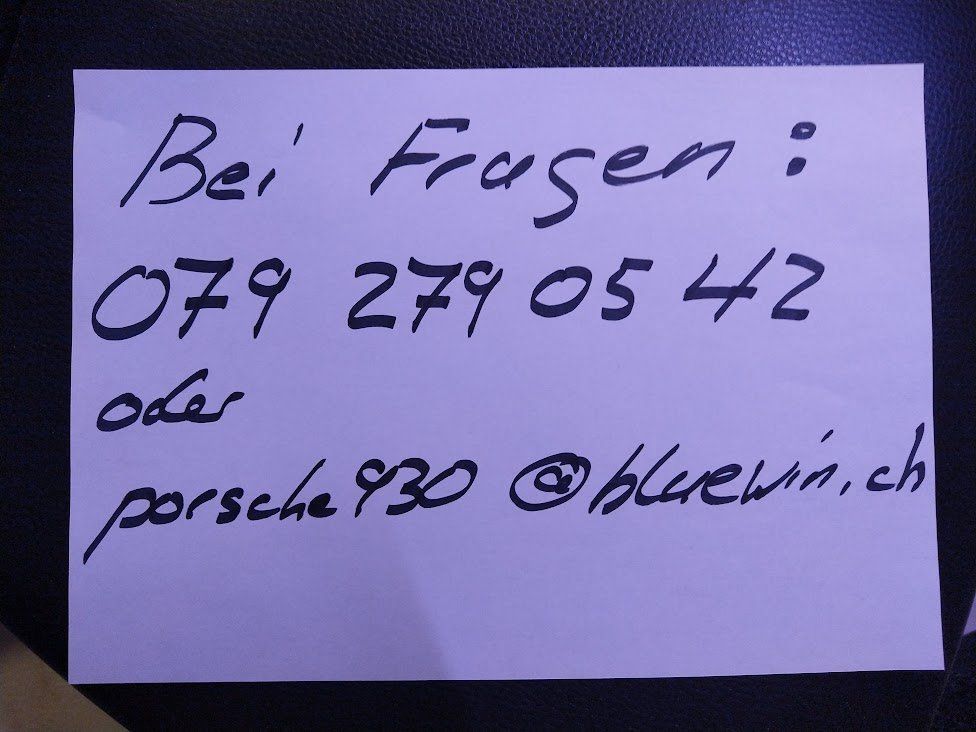 Bei Fragen:
079 279 05 42
oder
porsche930@bluewin.ch